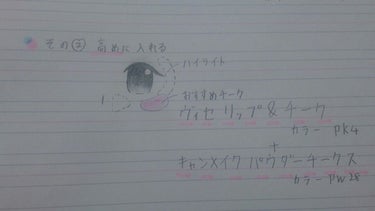 その② 高めに入れる
ハイライト
おすすめチーク
ヴィセ リップ&チーク
カラー PK4
+
キャンメイク パウダーチークス
カラー PW28